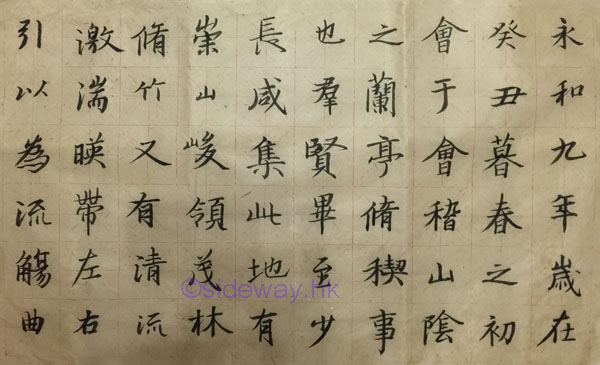 永和九年歲在
癸丑暮春之初
會于會稽山陰
之蘭亭脩稧事
也羣賢畢至少
長咸集此地有
崇山峻領茂林
脩竹又有清流
激湍暎帶左右
引以為流觴曲
©sideway.hk